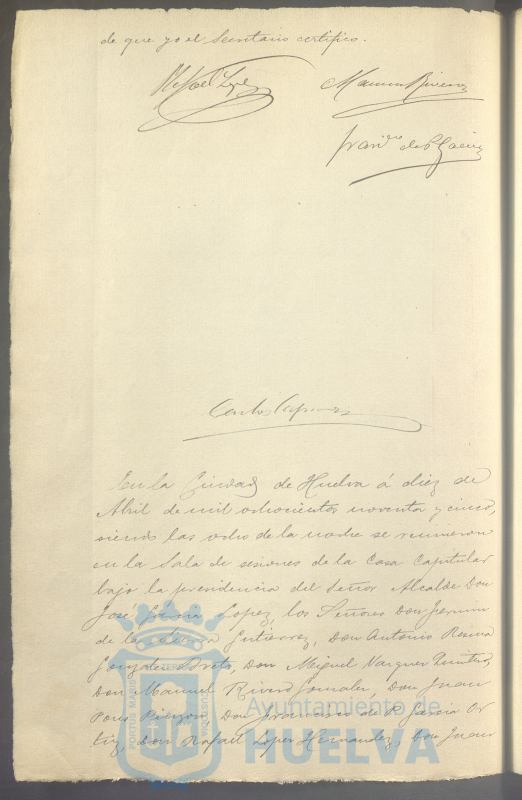 de que yo el Secretario certifico.
Rafael Lopez
Manuel Rivero
Fran.co de P. Garcia
Carlos
En la Ciudad de Huelva á diez de
Abril de mil ochocientos noventa y cinco,
siendo las ocho de la noche se reunieron
en la Sala de sesiones de la Casa Capitular
bajo la presidencia del Señor Alcalde Don
José Garcia Lopez, los Señores Don
de la Gutierrez, Don Antonio
Gonzalez Don Miguel Vazquez
Don Manuel Rivero Gonzalez, Don Juan
Pons Don Francisco de P. Garcia Or
tiz, Don Rafael Lopez Hernandez, Don Juan
PORTUS MARIS CUSTODIA
Ayuntamiento de
HUELVA